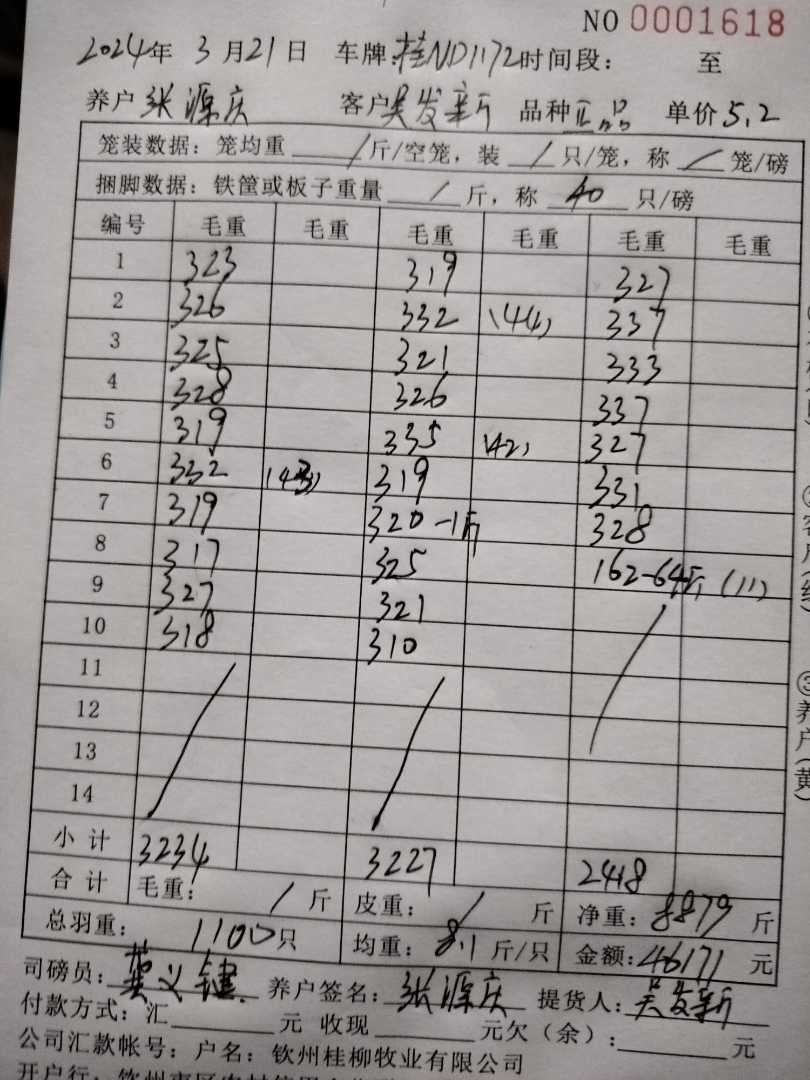 NO 0001618
2024年 3月21日 车牌:桂ND1172时间段: 至
养户 张源庆 客户吴发新 品种正品 单价5.2
笼装数据: 笼均重 / 斤/空笼, 装 / 只/笼, 称 / 笼/磅
捆脚数据: 铁筐或板子重量 / 斤, 称 40 只/磅
编号 毛重 毛重 毛重 毛重 毛重 毛重
1 323 319 327
2 326 332 (44) 337
3 325 321 333
4 328 326 337
5 319 335 (42) 327
6 332 (43) 319 331
7 319 320-1斤 328
8 317 325 162-64斤 (11)
9 327 321 /
10 318 310
11 / /
12
13
14
小计 3234 3227 2418
合计 毛重: / 斤 皮重: / 斤 净重: 8879 斤
总羽重: 1100只 均重: 8.1 斤/只 金额:46171 元
司磅员: 义键 养户签名: 张源庆 提货人: 吴发新
付款方式: 汇 元 收现 元欠(余): 元
公司汇款帐号: 户名: 钦州桂柳牧业有限公司
开户行:
③养户(黄)